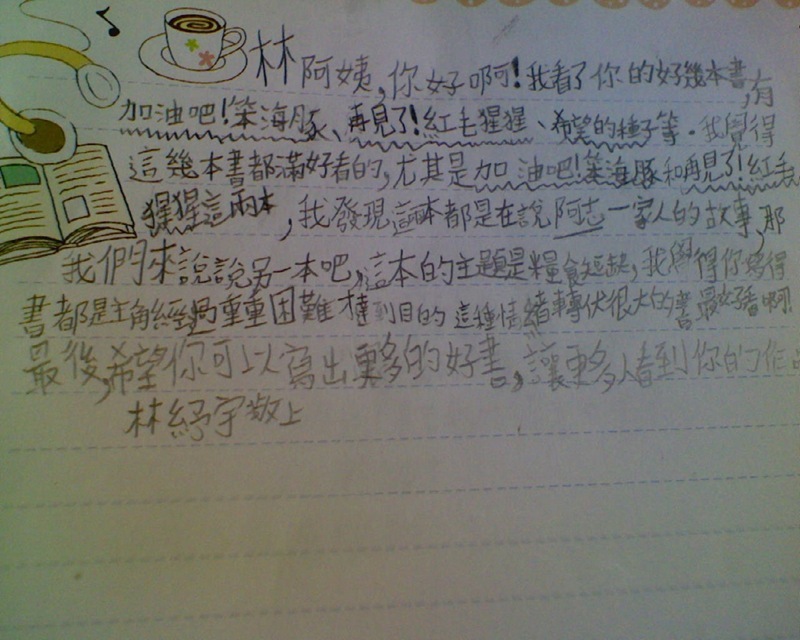 林阿姨,你好啊!我看了你的好幾本書,有
加油吧!笨海豚、再見了!紅毛猩猩、希望的種子等。我覺得
這幾本書都滿好看的,尤其是加油吧!笨海豚和再見了!紅毛
猩猩這兩本,我發現這兩本都是在說阿志一家人的故事,那
我們來說說另一本吧,這本的主題是糧食短缺,我覺得你寫得
書都是主角經過重重困難才達到目的這種情緒轉伏很大的書最好看啊!
最後,希望你可以寫出更多的好書,讓更多人看到你的作品
林紓宇敬上